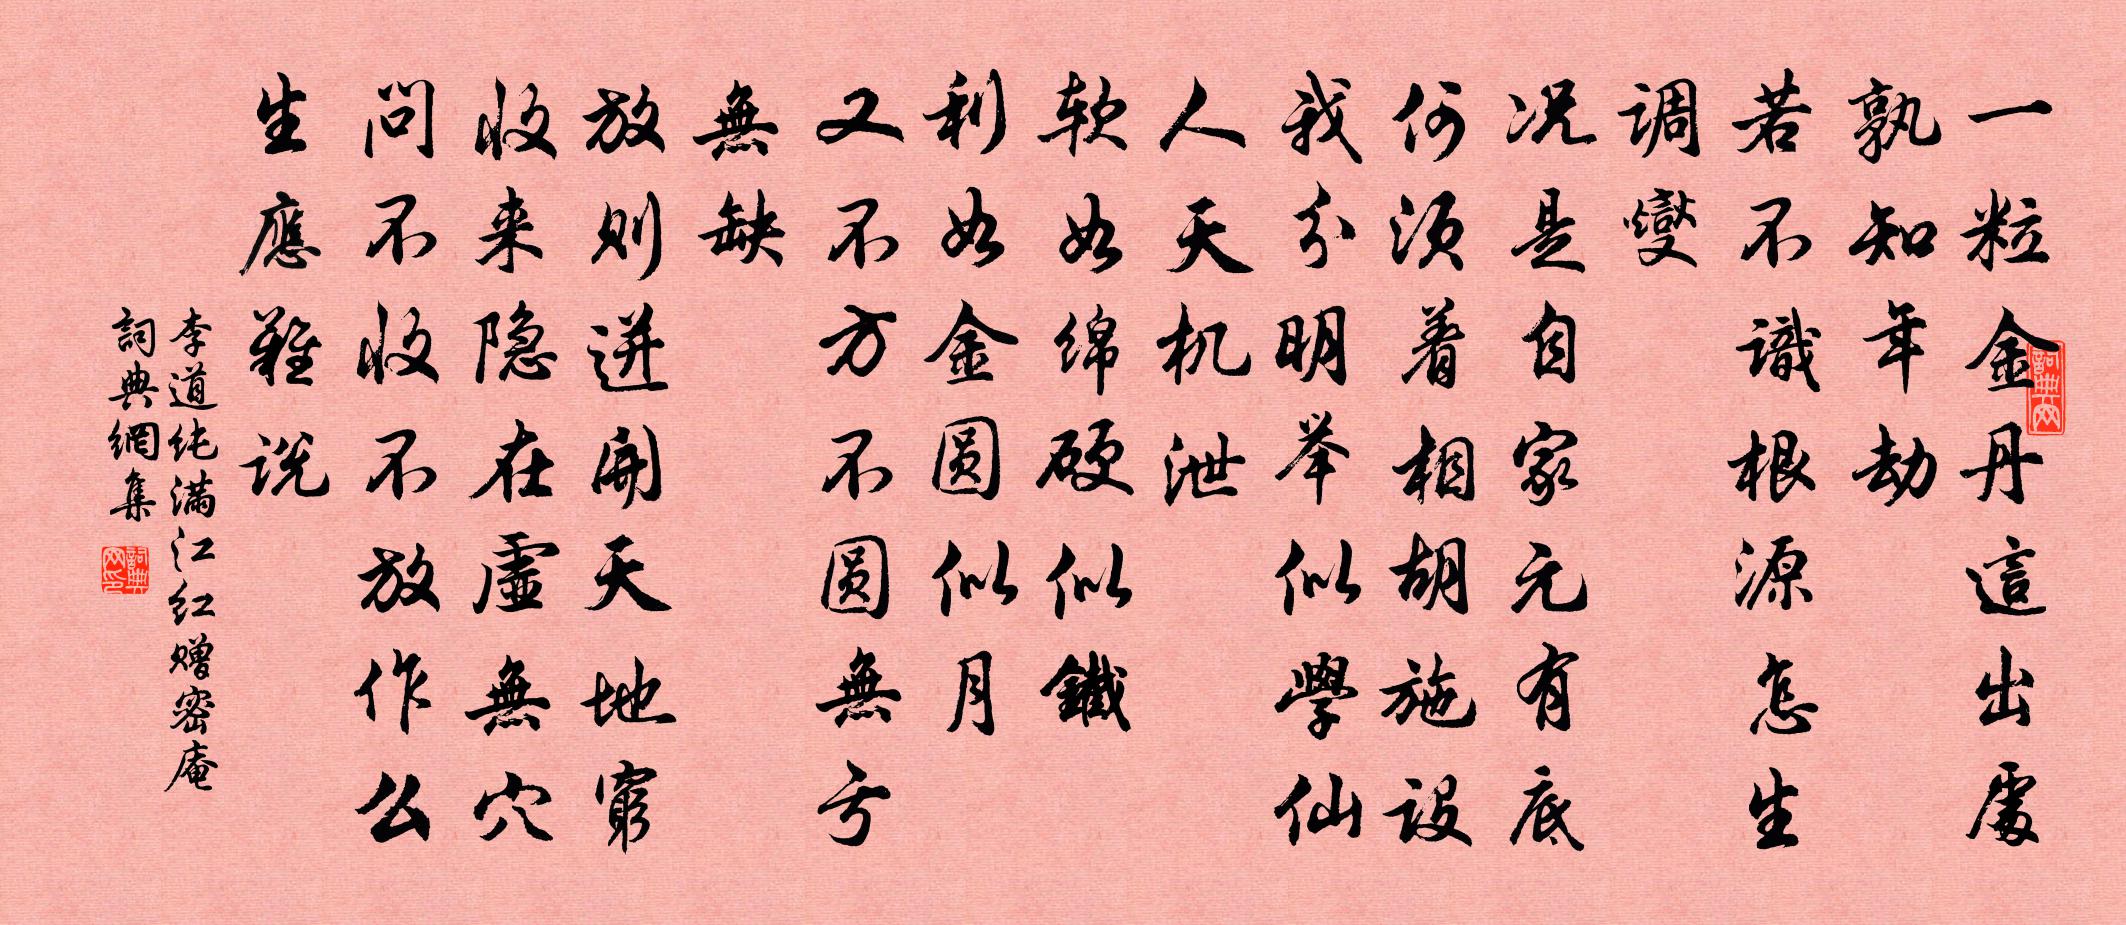 一粒金丹這出處
孰知年劫
若不識根源怎生
调燮
况是自家元有底
何须着相胡施設
我分明举似學仙
人天机泄
软如绵硬似鐵
利如金圆似月
又不方不圆無亏
無缺
放则迸開天地窮
收来隐在虛無穴
问不收不放作么
生應難说
李道纯满江红赠密庵
詞典網集
詞典网
詞典网印